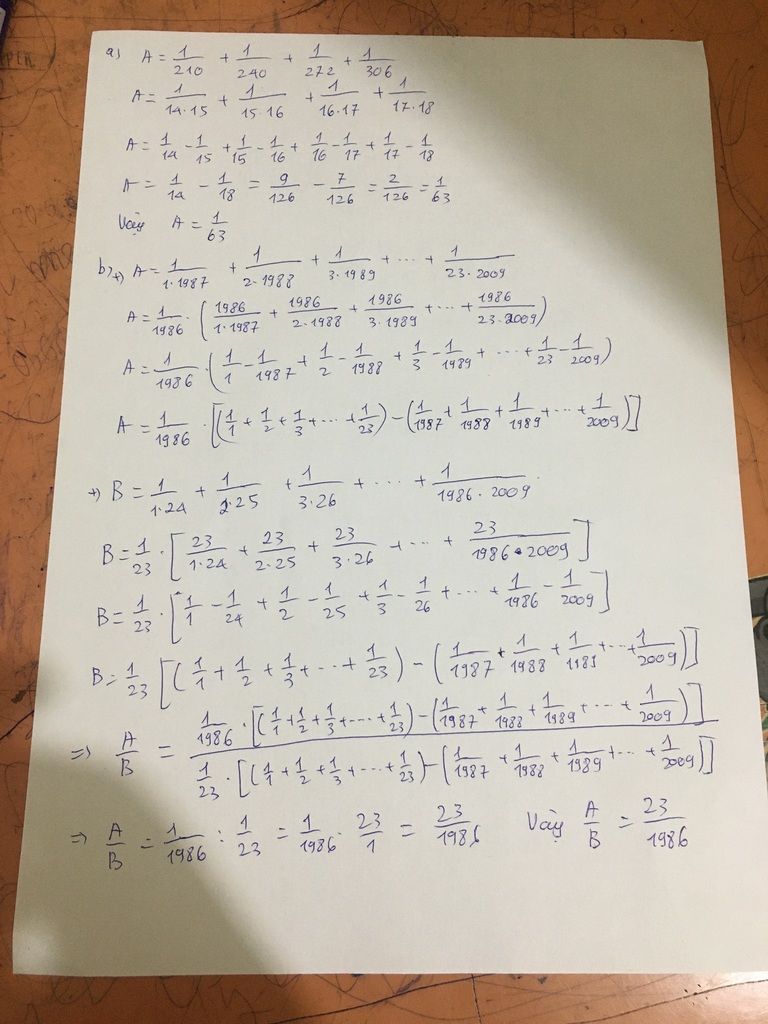 a) A = 1/210 + 1/240 + 1/272 + 1/306
A = 1/14·15 + 1/15·16 + 1/16·17 + 1/17·18
A = 1/14 - 1/15 + 1/15 - 1/16 + 1/16 - 1/17 + 1/17 - 1/18
A = 1/14 - 1/18 = 9/126 - 7/126 = 2/126 = 1/63
Vậy A = 1/63
b) +) A = 1/1·1987 + 1/2·1988 + 1/3·1989 + ... + 1/23·2009
A = 1/1986 · (1986/1·1987 + 1986/2·1988 + 1986/3·1989 + ... + 1986/23·2009)
A = 1/1986 · (1/1 - 1/1987 + 1/2 - 1/1988 + 1/3 - 1/1989 + ... + 1/23 - 1/2009)
A = 1/1986 · [(1/1 + 1/2 + 1/3 + ... + 1/23) - (1/1987 + 1/1988 + 1/1989 + ... + 1/2009)]
+) B = 1/1·24 + 1/2·25 + 1/3·26 + ... + 1/1986·2009
B = 1/23 · [23/1·24 + 23/2·25 + 23/3·26 + ... + 23/1986·2009]
B = 1/23 · [1/1 - 1/24 + 1/2 - 1/25 + 1/3 - 1/26 + ... + 1/1986 - 1/2009]
B = 1/23 [(1/1 + 1/2 + 1/3 + ... + 1/23) - (1/1987 + 1/1988 + 1/1989 + ... + 1/2009)]
=> A/B = 1/1986 · [(1/1 + 1/2 + 1/3 + ... + 1/23) - (1/1987 + 1/1988 + 1/1989 + ... + 1/2009)] / 1/23 · [(1/1 + 1/2 + 1/3 + ... + 1/23) - (1/1987 + 1/1988 + 1/1989 + ... + 1/2009)]
=> A/B = 1/1986 : 1/23 = 1/1986 · 23/1 = 23/1986 Vậy A/B = 23/1986